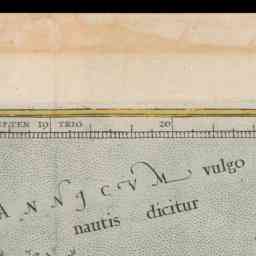 PTEN 19 TRIO 20
ANNICVM vulgo
nautis dicitur